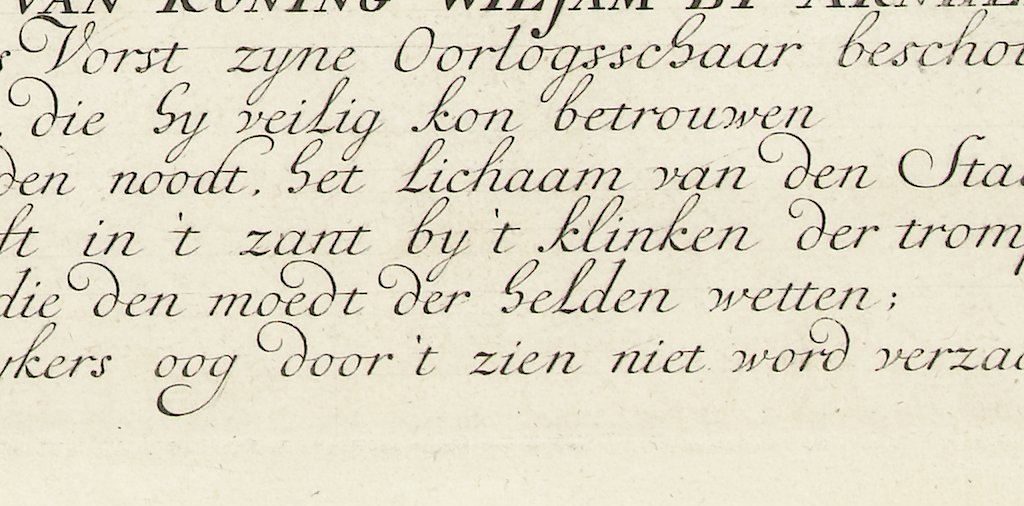 VAN KONING WILJAM BY ARNHE
s Vorst zyne Oorlogsschaar beschou
die hy veilig kon betrouwen
den noodt, het lichaam van den Sta
ft in 't zant by 't klinken der tromp
die den moedt der helden wetten;
ykers oog door 't zien niet word verzaa